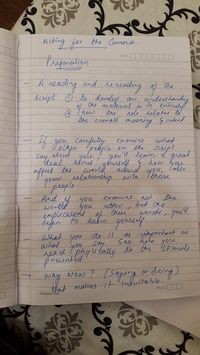 Acting for the Camera.
Preparation
- A reading and rereading of the
script ① to develop an understanding
of the material in its entirety
② how the role relates to
the overall meaning & intent.
- If you carefully examine what
other people in the script
say about you, you'll learn a great
deal about yourself & how you
affect the world around you, also
your relationship with those
people
- And if you examine not the
words you utter, but the
implications of these words, you'll
begin to know yourself
- What you do is as important as
what you say. See how you
react (physically to the stimuli
presented
- Why Now? (Saying or doing)
that makes it inevitable